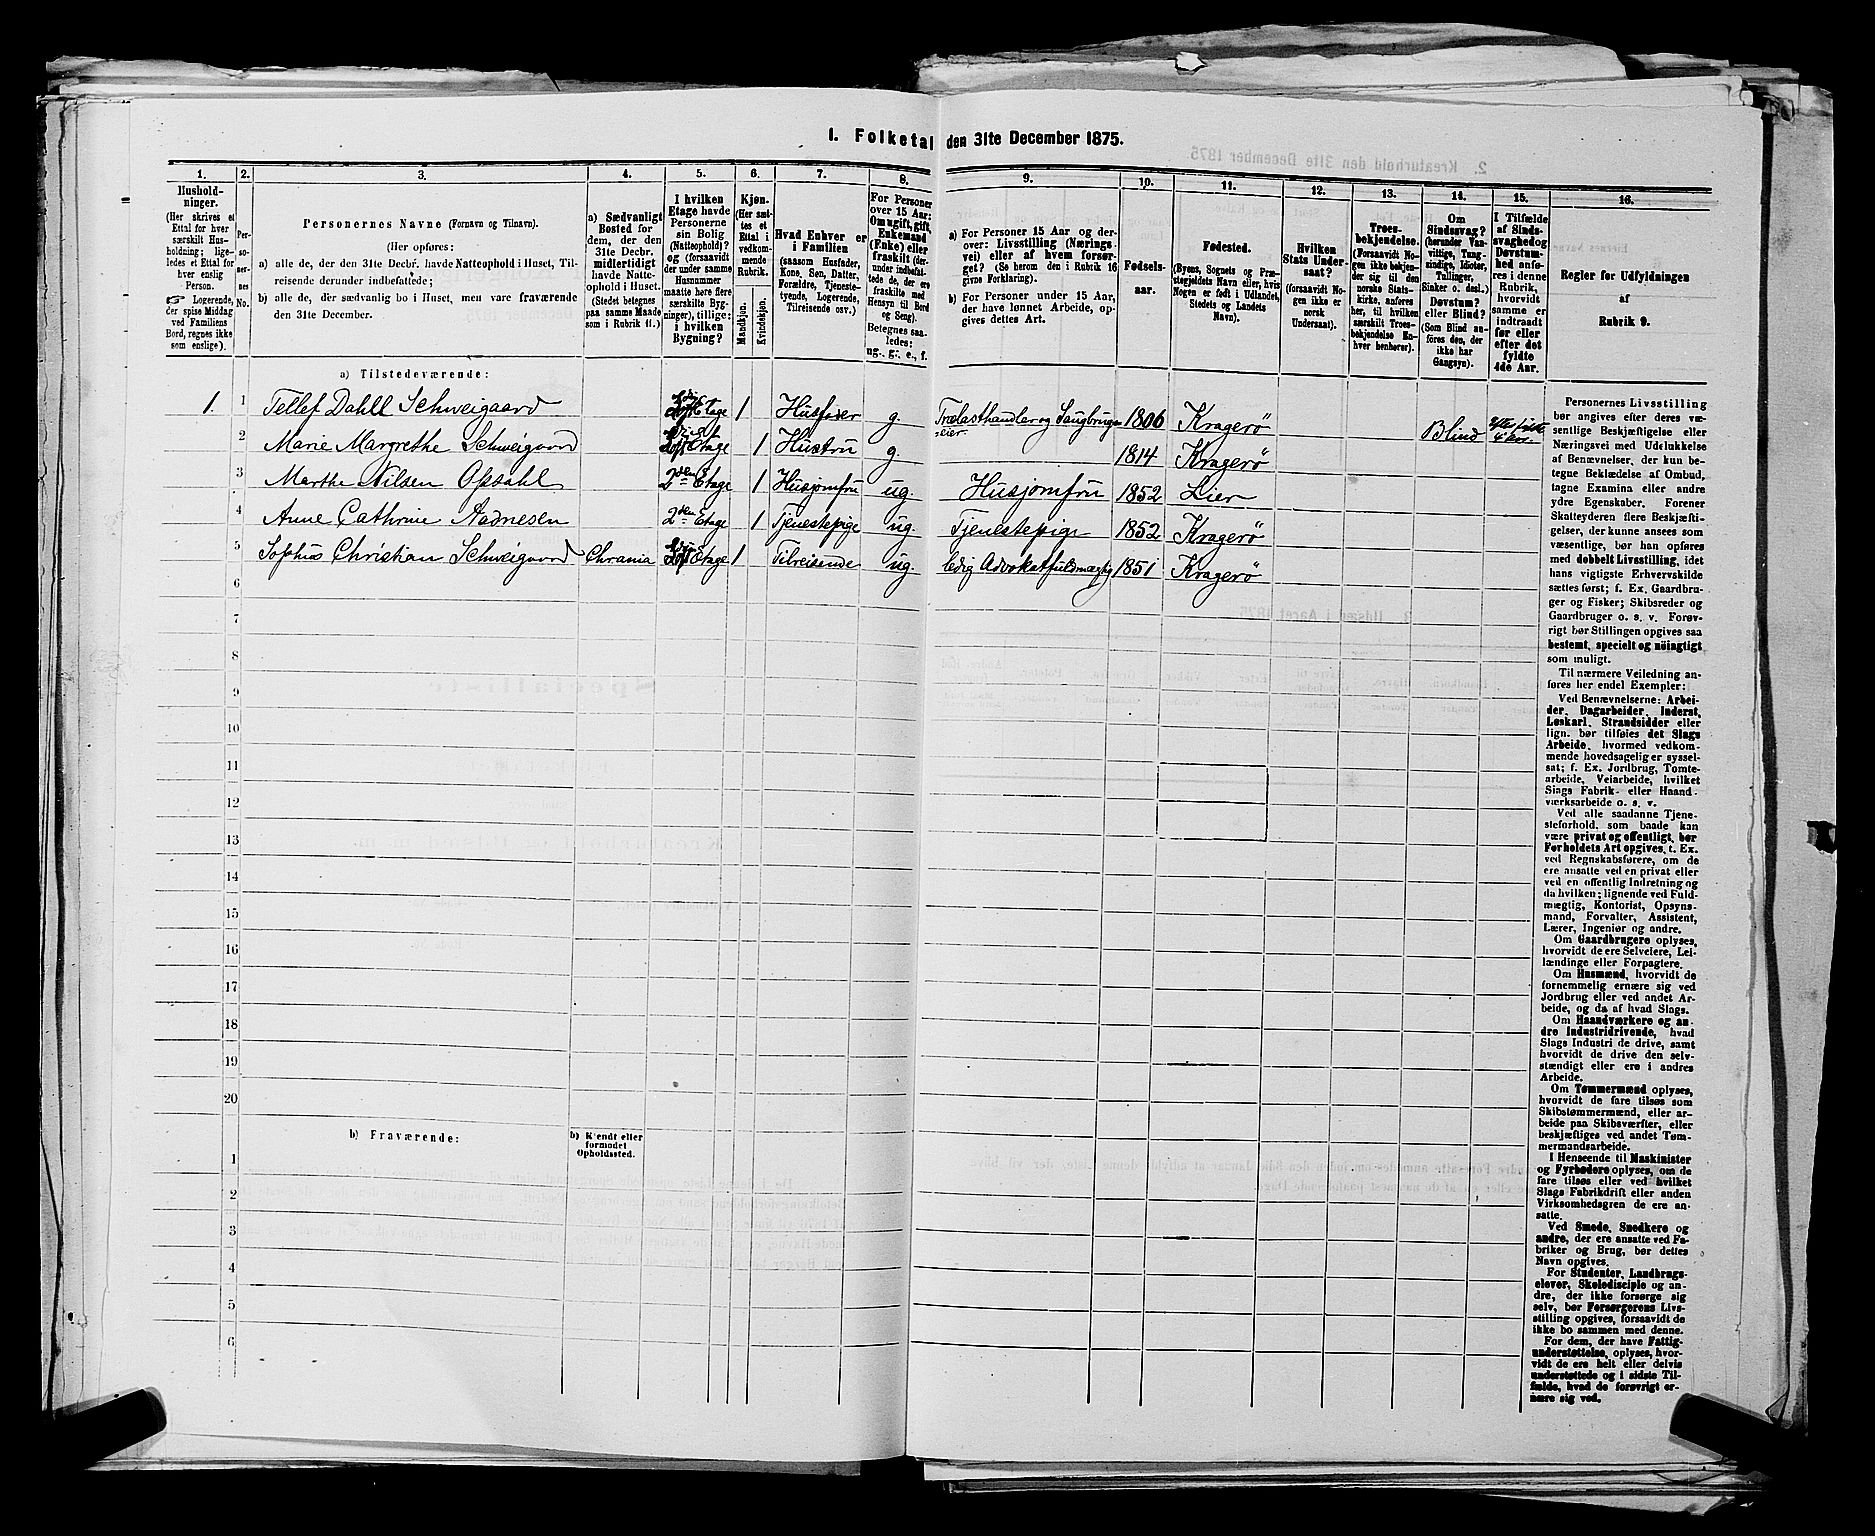 1. Folketal den 31te December 1875.
1.
Hushold-
ninger.
(Her skrives et
Ettal for hver
særskilt Hus-
holdning; lige-
ledes et Ettal for
hver enslig
Person.
☞ Logerende,
der spise Middag
ved Familiens
Bord, regnes ikke
som enslige).
2.
Per-
so-
ner-
nes
No.
3.
Personernes Navne (Fornavn og Tilnavn).
(Her opføres:
a) alle de, der den 31te Decbr. havde Natteophold i Huset, Til-
reisende derunder indbefattede;
b) alle de, der sædvanlig bo i Huset, men vare fraværende
den 31te December.
4.
a) Sædvanligt
Bosted for
dem, der den
31te Decbr.
midlertidigt
havde Natte-
ophold i Huset.
(Stedet betegnes
paa samme Maade
som i Rubrik 11.)
5.
I hvilken
Etage havde
Personerne
sin Bolig
(Natteophold)?
og (forsaavidt
der under samme
Husnummer
maatte høre flere
særskilte Byg-
ninger), tillige:
i hvilken
Bygning?
6.
Kjøn.
(Her sæt-
tes et
Ettal i
vedkom-
mende
Rubrik.
Mandkjøn.
Kvindekjøn.
7.
Hvad Enhver er
i Familien
(saasom Husfader,
Kone, Søn, Datter,
Forældre, Tjeneste-
tyende, Logerende,
Tilreisende osv.)
8.
For Personer
over 15 Aar:
Om ugift, gift,
Enkemand
(Enke) eller
fraskilt (der-
under indbefat-
tede de, der ere
fraskilte med
Hensyn til Bord
og Seng).
Betegnes saa-
ledes:
ug., g., e., f.
9.
a) For Personer 15 Aar og der-
over: Livsstilling (Nærings-
vei) eller af hvem forsør-
get? (Se herom den i Rubrik 16
givne Forklaring).
b) For Personer under 15 Aar,
der have lønnet Arbeide, op-
gives dettes Art.
10.
Fødsels-
aar.
11.
Fødested.
(Byens, Sognets og Præ-
stegjeldets Navn eller, hvis
Nogen er født i Udlandet,
Stedets og Landets
Navn).
12.
Hvilken
Stats Under-
saat?
(forsaavidt No-
gen ikke er
norsk
Undersaat).
13.
Troes-
bekjendelse.
(Forsaavidt No-
gen ikke bekjen-
der sig til den
norske Stats-
kirke, anføres
her, til hvilken
særskilt Troes-
bekjendelse En-
hver henhører).
14.
Om
Sindssvag?
(herunder Van-
vittige, Tung-
sindige, Idioter,
Tullinger,
Sinker o. desl.)
Døvstum?
eller Blind?
(Som Blind an-
føres den, der
ikke har
Gangsyn).
15.
I Tilfælde
af Sinds-
svaghed og
Døvstum-
hed anfø-
res i denne
Rubrik,
hvorvidt
samme er
indtraadt
før eller
efter det
fyldte
4de Aar.
16.
Regler for Udfyldningen
af
Rubrik 9.
a) Tilstedeværende:
1. 1 Tellef Dahll Schweigaard Etage 1 Husfader g. Trælasthandler og Saugbrugs- 1806 Kragerö Blind
eier
2 Marie Margrethe Schweigaard Etage 1 Hustru g. 1814 Kragerö
3 Marthe Nilsen Opsahl 2den Etage 1 Husjomfru ug. Husjomfru 1852 Lier
4 Anne Cathrine Aadnesen 2den Etage 1 Tjenestepige ug. Tjenestepige 1852 Kragerö
5 Sophus Christian Schweigaard Chrania Etage 1 Tilreisende ug. ledig Advokatfuldmægtig 1851 Kragerö
6
7
8
9
10
11
12
13
14
15
16
17
18
19
20
b) Fraværende:
b) Kjendt eller
formodet
Opholdssted.
1
2
3
4
5
6
Personernes Livsstilling
bør angives efter deres væ-
sentlige Beskjæftigelse eller
Næringsvei med Udelukkelse
af Benævnelser, der kun be-
tegne Beklædelse af Ombud,
tagne Examina eller andre
ydre Egenskaber. Forener
Skatteyderen flere Beskjæfti-
gelser, der kunne ansees som
væsentlige, bør han opføres
med dobbelt Livsstilling, idet
hans vigtigste Erhvervskilde
sættes først; f. Ex. Gaardbru-
ger og Fisker; Skibsreder og
Gaardbruger o. s. v. Forøv-
rigt bør Stillingen opgives saa
bestemt, specielt og nöiagtigt
som muligt.
Til nærmere Veiledning an-
føres her endel Exempler:
Ved Benævnelserne: Arbei-
der, Dagarbeider, Inderst,
Løskarl, Strandsidder eller
lign. bør tilføies det Slags
Arbeide, hvormed vedkom-
mende hovedsagelig er syssel-
sat; f. Ex. Jordbrug, Tomte-
arbeide, Veiarbeide, hvilket
Slags Fabrik- eller Haand-
værksarbeide o. s. v.
Ved alle saadanne Tjene-
steforhold, som baade kan
være privat og offentligt, bør
Forholdets Art opgives, f. Ex.
ved Regnskabsførere, om de
ere ansatte ved en privat eller
ved en offentlig Indretning og
da hvilken; lignende ved Fuld-
mægtig, Kontorist, Opsyns-
mand, Forvalter, Assistent,
Lærer, Ingeniør og andre.
Om Gaardbrugere oplyses,
hvorvidt de ere Selveiere, Lei-
lændinge eller Forpagtere.
Om Husmænd, hvorvidt de
fornemmelig ernære sig ved
Jordbrug eller ved andet Ar-
beide, og da af hvad Slags.
Om Haandværkere og an-
dre Industridrivende, hvad
Slags Industri de drive, samt
hvorvidt de drive den selv-
stændigt eller ere i andres
Arbeide.
Om Tømmermænd oplyses,
hvorvidt de fare tilsøs som
Skibstømmermænd, eller ar-
beide paa Skibsværfter, eller
beskjæftiges ved andet Tøm-
mermandsarbeide.
I Henseende til Maskinister
og Fyrbødere oplyses, om de
fare tilsøs eller ved hvilket
Slags Fabrikdrift eller anden
Virksomhedsgren de ere an-
satte.
Ved Smede, Snedkere og
andre, der ere ansatte ved Fa-
briker og Brug, bør dettes
Navn opgives.
For Studenter, Landbrugs-
elever, Skoledisciple og an-
dre, der ikke forsørge sig
selv, bør Forsørgerens Livs-
stilling opgives, forsaavidt de
ikke bo sammen med denne.
For dem, der have Fattig-
understøttelse, oplyses, hvor-
vidt de ere helt eller delvis
understøttede og i sidste Til-
fælde, hvad de forøvrigt er-
nære sig ved.